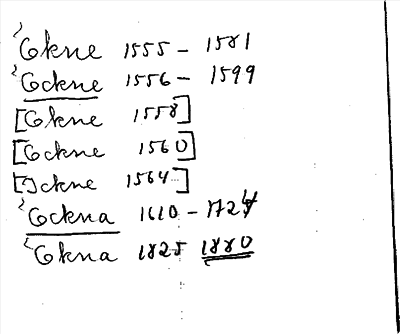 Ekne 1555 – 1581
Eckne 1556 – 1599
[Ekne 1558]
[Eckne 1560]
[Ickne 1564]
Eckna 1610 – 1724
Ekna 1825 1880